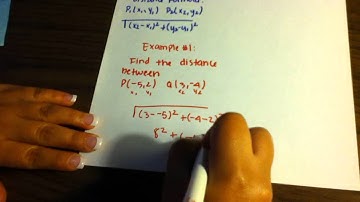 P₁(x₁,y₁) P₂(x₂,y₂)
√(x₂-x₁)²+(y₂-y₁)²
Example #1:
Find the distance
between
P(-5,2) Q(3,-4)
x₁ y₁ x₂ y₂
√(3--5)²+(-4-2)²
8²+(-